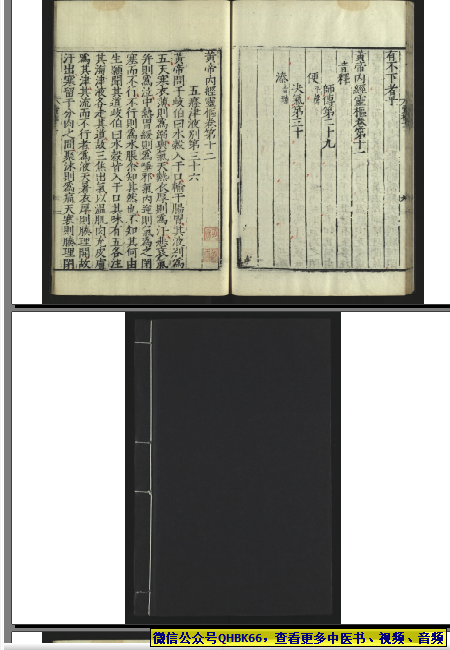 有不下者乎
黃帝內經靈樞卷第十一
音釋
師傳第二十九
便平聲
決氣第三十
湊
黃帝內經靈樞卷第十二
五癃津液別第三十六
黃帝問于歧伯曰水穀入于口輸于腸胃其液別為
五天寒衣薄則為溺與氣天熱衣厚則為汗悲哀氣
并則為泣中熱胃緩則為唾邪氣內逆則氣為之閉
塞而不行不行則為水脹余知其然也不知其何由
生願聞其道歧伯曰水穀皆入于口其味有五各注
其海津液各走其道故三焦出氣以溫肌肉充皮膚
為其津其流而不行者為液天暑衣厚則腠理開故
汗出寒留于分肉之間聚沫則為痛天寒則腠理閉
微信公众号QHBK66，查看更多中医书、视频、音频